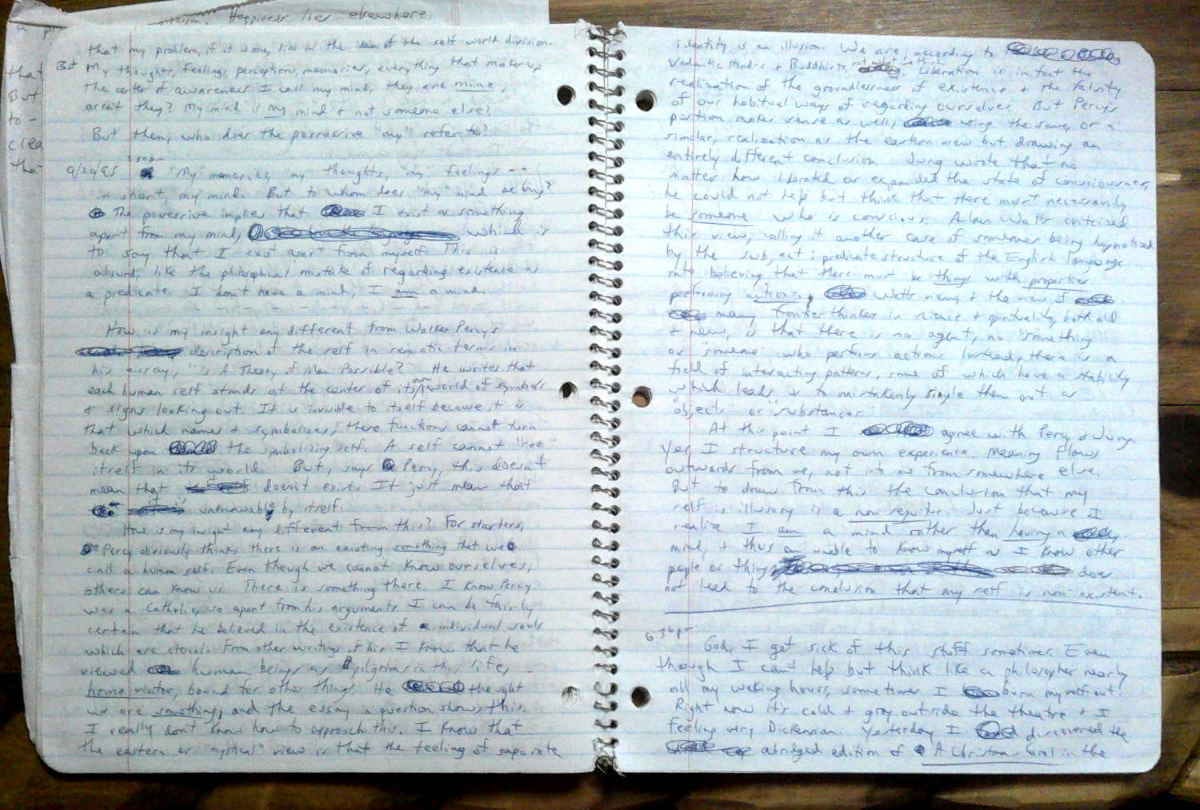 Happiness lies elsewhere.
that
But
to -
clea
tha
that my problem, if it is any, lies in the idea of the self world division.
But my thoughts, feelings, perceptions, memories, everything that makes up
the center of awareness I call my mind, they are mine,
aren't they? My mind is my mind & not someone else's
But then, who does the possessive "my" refer to?
"My" memories, my thoughts, my feelings --
in short, my mind. But to whom does "my" mind belong?
The possessive implies that I exist as something
apart from my mind, which is
to say that I exist apart from myself. This is
absurd, like the philosophical mistake of regarding existence as
a predicate. I don't have a mind; I am a mind.
How is my insight any different from Walker Percy's
description of the self in semiotic terms in
his essay, "Is A Theory of Man Possible?" He writes that
each human self stands at the center of its world of symbols
& signs looking out. It is invisible to itself because it is
that which names & symbolizes; these functions cannot turn
back upon the symbolizing self. A self cannot "see"
itself in its world. But, says Percy, this doesn't
mean that doesn't exist. It just means that
unknowable by itself.
How is my insight any different from this? For starters,
Percy obviously thinks there is an existing something that we
call a human self. Even though we cannot know ourselves,
others can know us. There is something there. I know Percy
was a Catholic, so apart from his arguments I can be fairly
certain that he believed in the existence of individual souls
which are eternal. From other writings of his I know that he
viewed human beings as pilgrims in this life,
bound for other things. He thought
we are something, and the essay in question shows this.
I really don't know how to approach this. I know that
the eastern or "mystical" view is that the feeling of separate
identity is an illusion. We are, according to
Vedantic Hindus & Buddhists, Liberation is in fact the
realization of the groundlessness of existence & the falsity
of our habitual ways of regarding ourselves. But Percy's
position makes sense as well, using the same, or a
similar, realization as the eastern view but drawing an
entirely different conclusion. Jung wrote that no
matter how liberated or expanded the state of consciousness,
he could not help but think that there must necessarily
be someone who is conscious. Alan Watts criticized
this view, calling it another case of someone being hypnotized
by the subject: predicate structure of the English language
believing that there must be things with properties
performing actions. Watts' view, & the view of
many frontier thinkers in science & spirituality, both old
& new, is that there is no agent, no "something"
or "someone" who performs actions. Instead, there is a
field of interacting patterns, some of which have a stability
which leads us to mistakenly single them out as
"objects" or "substances."
At this point I agree with Percy & Jung.
Yes, I structure my own experience. Meaning flows
outwards from me, not into me from somewhere else.
But to draw from this the conclusion that my
self is illusory is a non sequitur. Just because I
realize I am a mind rather than having a
mind, & thus am unable to know myself as I know other
people or things does
not lead to the conclusion that my self is non-existent.
God, I get sick of this stuff sometimes. Even
though I can't help but think like a philosopher nearly
all my waking hours, sometimes I burn myself out!
Right now it's cold & gray outside the theatre & I
feeling very Dickensian. Yesterday I discovered the
abridged edition of A Christmas Carol in the